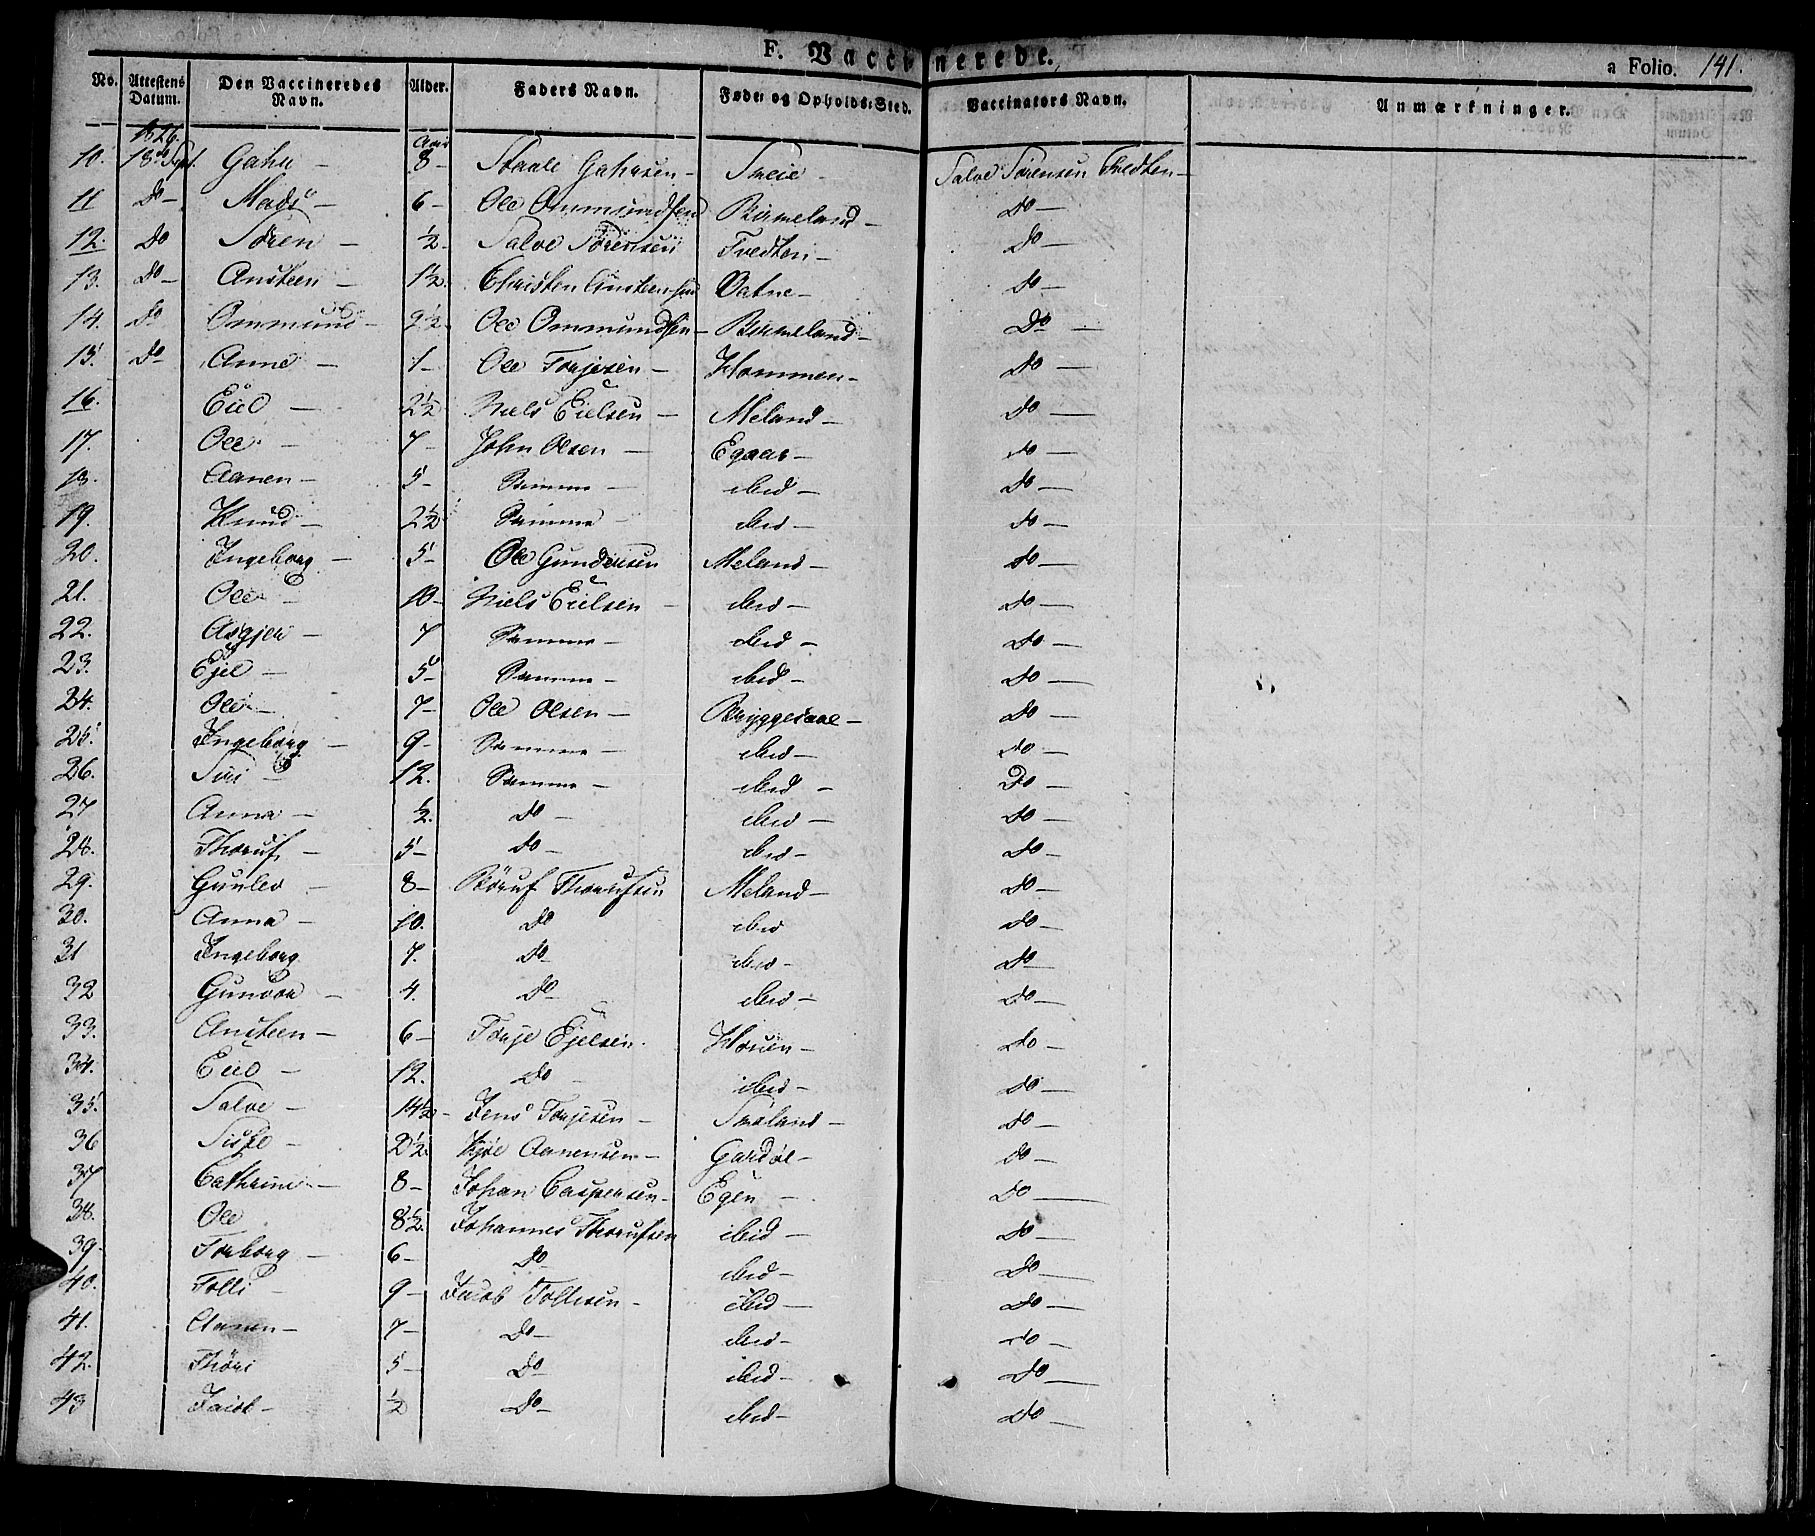 F. Vaccinerede.
a Folio. 141.
No. Attestens Datum. Den Vaccineredes Navn. Alder. Faders Navn. Føde- og Opholds-Sted. Vaccinators Navn. Anmærkninger.
1826. Aar
10. 18de Sept. 8 - Staale Sveie - Salve Sørensen Tvedten -
11 Do - Mads - 6 - Ole Ommundsen Birkeland - Do -
12. Do Søren - ½ - Salve Sørensen Tvedten - Do -
13. Do - Ansteen - 1½. Christen Ansteensen Vatne - do -
14. Do Ommund - 9½ - Ole Ommundsen - Birkeland - Do -
15. Do Anne - 1 - Ole Torjesen - Hommen - Do -
16. Eiel - 2½ - Niels Eielsen - Meland - Do -
17. Ole - 7 - John Olsen - Egaas - do -
18. Aanen - 5 - Samme - ibid - do -
19. Knud - 2½ Samme - ibid - do -
20. Ingeborg - 5 - Ole Gundersen Meland - do -
21. Ole - 10 - Niels Eielsen - ibid - Do -
22. Asgjer - 7 Samme - ibid - Do -
23. Ejel - 5 - Samme - ibid - Do -
24. Ole - 7 - Ole Olsen - Bryggesaae - Do -
25. Ingeborg - 9 - Samme - ibid - do -
26. Siri - 12. Samme - ibid - Do -
27 Anna - ½. Do - ibid - Do -
28. Thoruf - 5 - do - ibid - Do -
29. Gunlev - 8 - Thorufsen Meland - Do -
30. Anna - 10. Do ibid Do -
31 Ingeborg 7. Do ibid - Do -
32 Gunvor - 4. Do ibid - Do -
33. Ansteen - 6 - Torje Ejelsen. - Do -
34. Eiel - 12. Do - ibid - do -
35. Salve - 14½ - Jens Torjesen - - do -
36 - 2½ Aanensen - Gardøl - do -
37 Cathrine - 8 - Johan Caspersen - Egen - Do -
38. Ole 8½. Johannes Thorufsen ibid - Do -
39. Torborg - 6 - Do ibid - Do -
40. Tolli - 9 - Jacob Tollisen - ibid - Do -
41. Aanen - 7 - Do - ibid - do -
42. Thore 5 - Do - ibid - Do -
43 Jacob - ½ Do - ibid - Do -